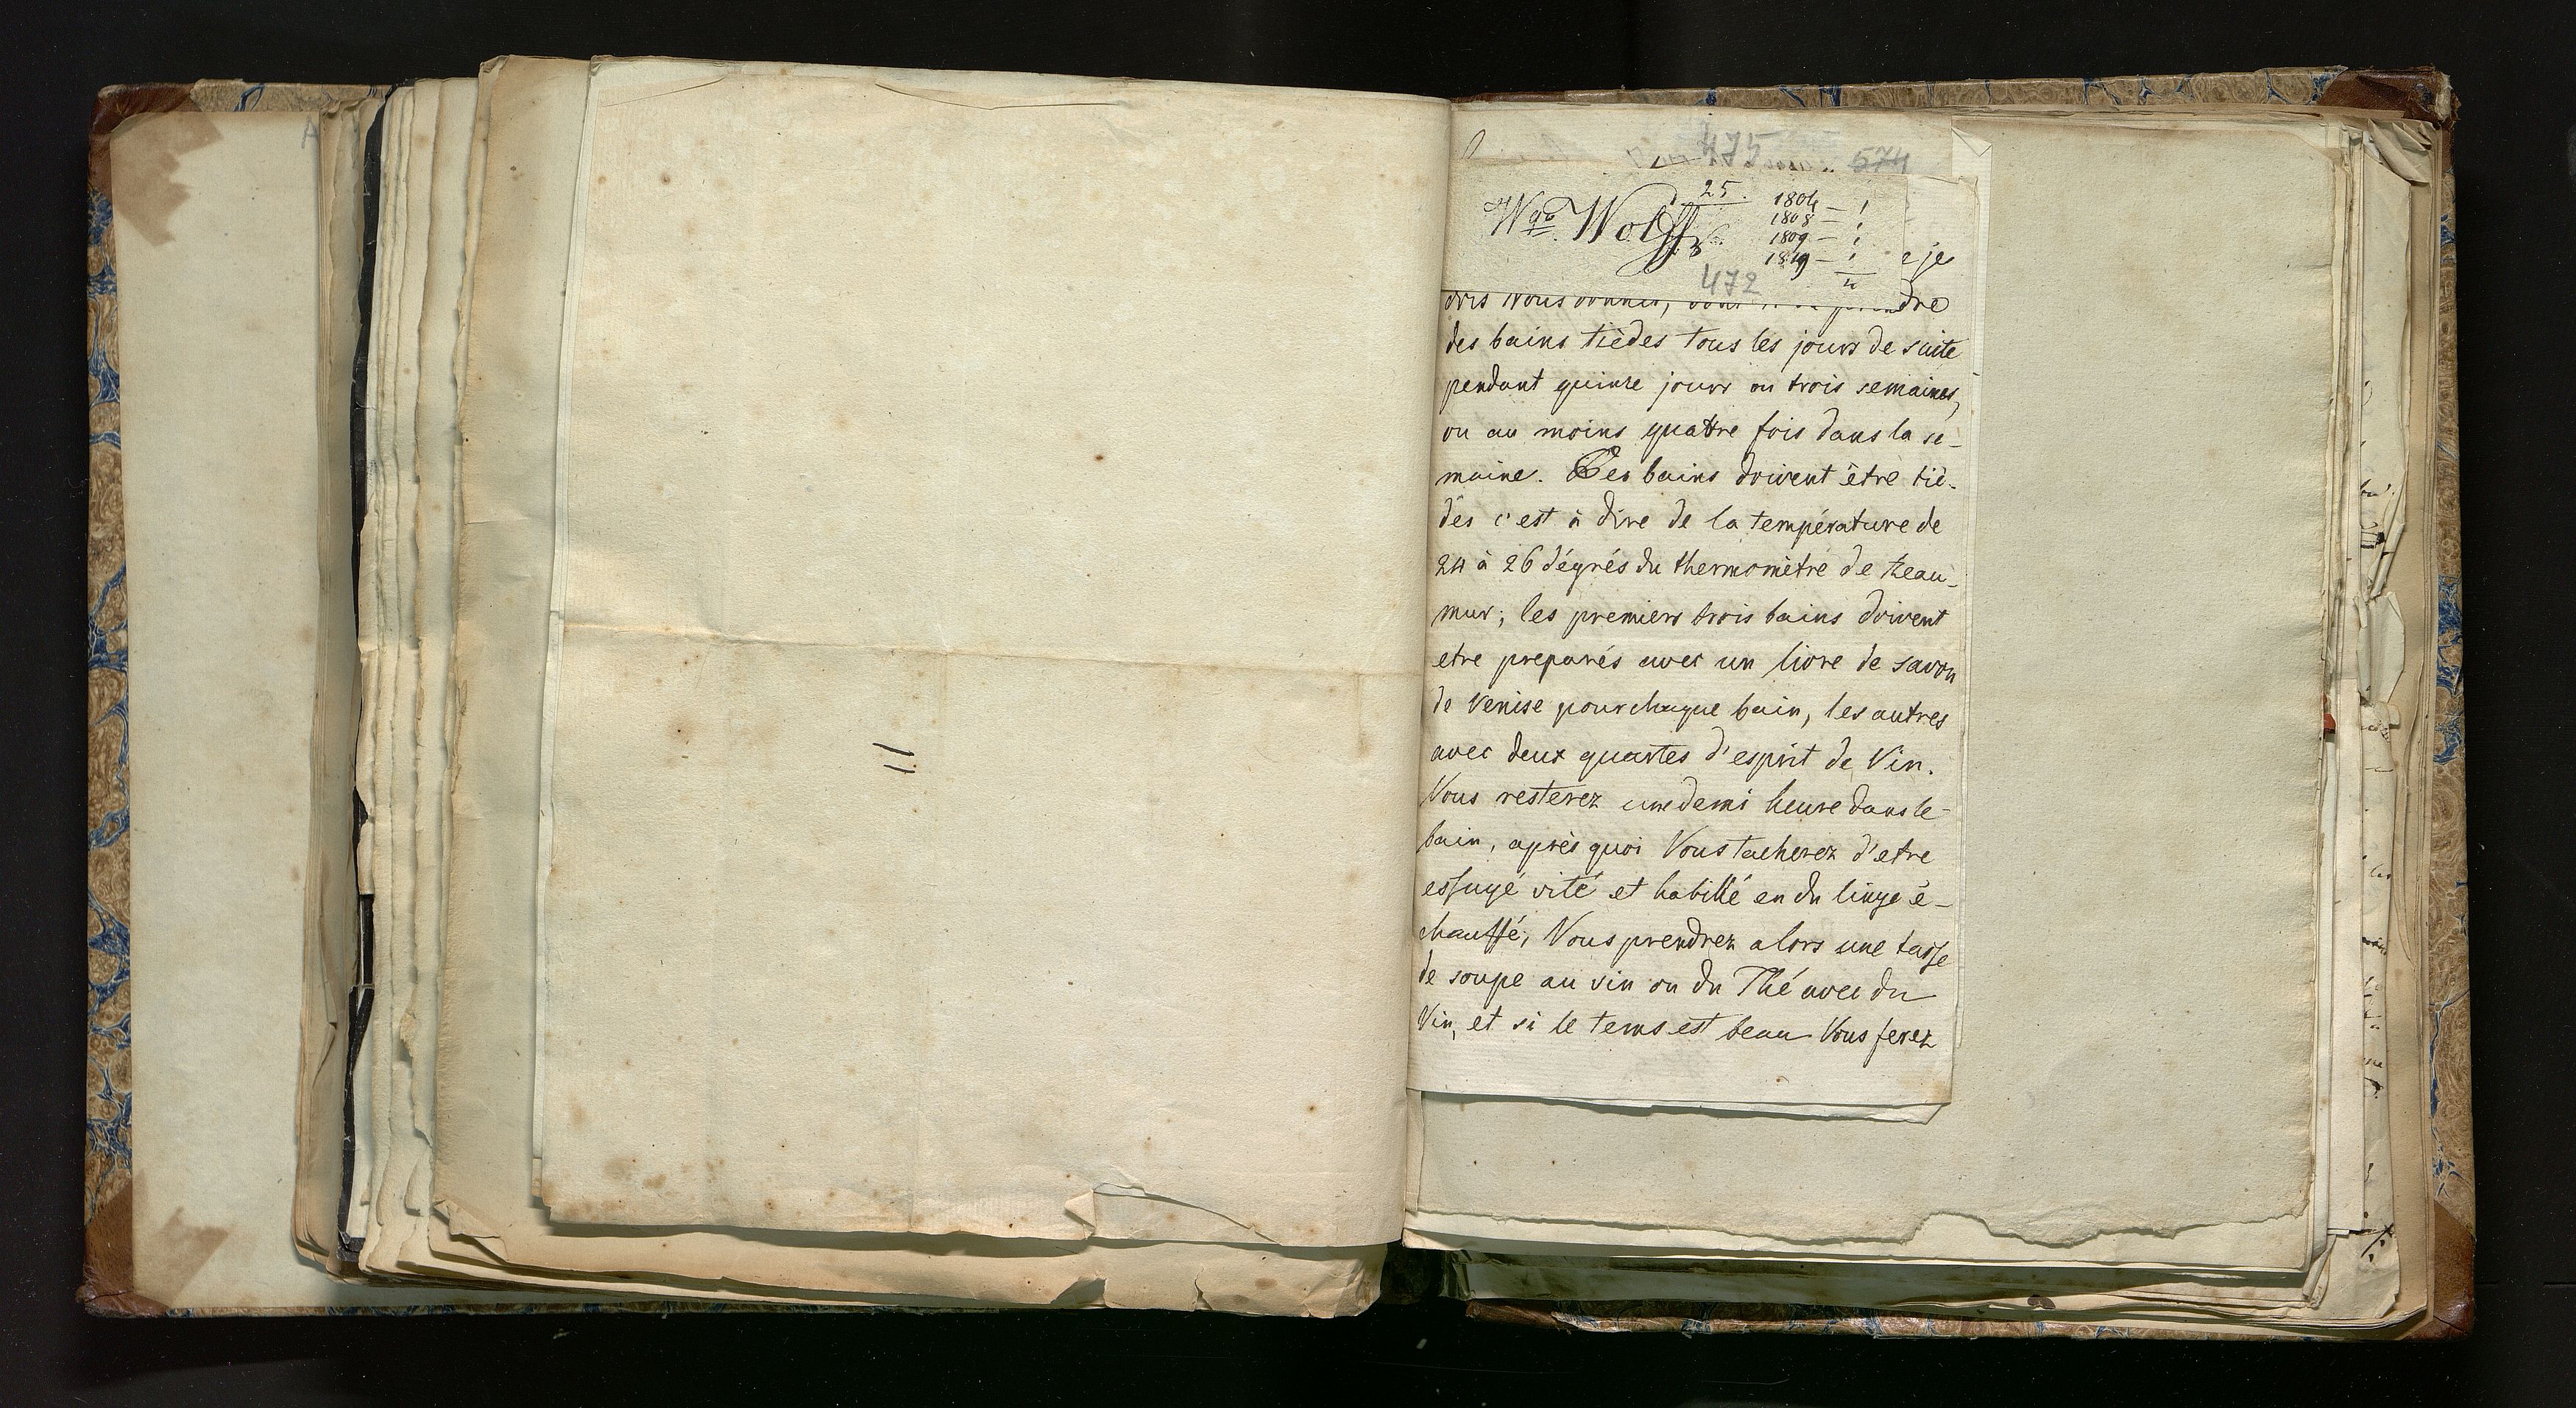 475
574
25.
Wgo Wolff
1804 — 1
1808 — 1
1809 — 1
1819 — 1
4
472
je
dois Vous donner, prendre
des bains tièdes tous les jours de suite
pendant quinze jours ou trois semaines,
ou au moins quattre fois dans la se-
maine. Ces bains doivent être tiè-
des c'est à dire de la température de
24 à 26 dégrés du thermomètre de Reau-
mur; les premiers trois bains doivent
etre preparés avec un livre de savon
de Venise pour chaque bain, les autres
avec deux quartes d'esprit de Vin.
Vous resterez une demi heure dans le
bain, après quoi Vous tacherez d'etre
essuyé vité et habillé en du linge é-
chauffé, Vous prendrez alors une tasse
de soupe au vin ou du Thé avec du
Vin, et si le tems est beau Vous ferez